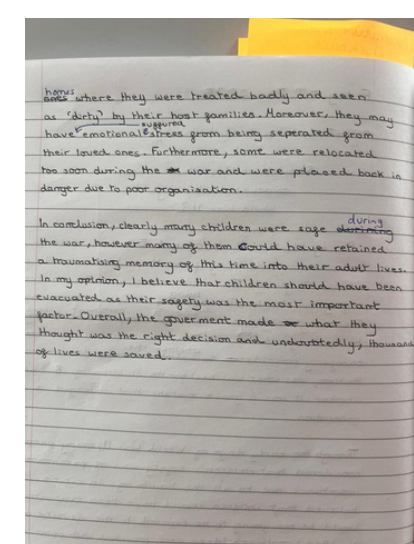 homes
ones where they were treated badly and seen
as 'dirty' by their host families. Moreover, they may
suffured
have emotional stress from being seperated from
their loved ones. Furthermore, some were relocated
too soon during the war and were placed back in
danger due to poor organisation.
during
In conclusion, clearly many children were safe
the war, however many of them could have retained
a traumatising memory of this time into their adult lives.
In my opinion, I believe that children should have been
evacuated as their safety was the most important
factor. Overall, the goverment made what they
thought was the right decision and undoubtedly, thousand
of lives were saved.